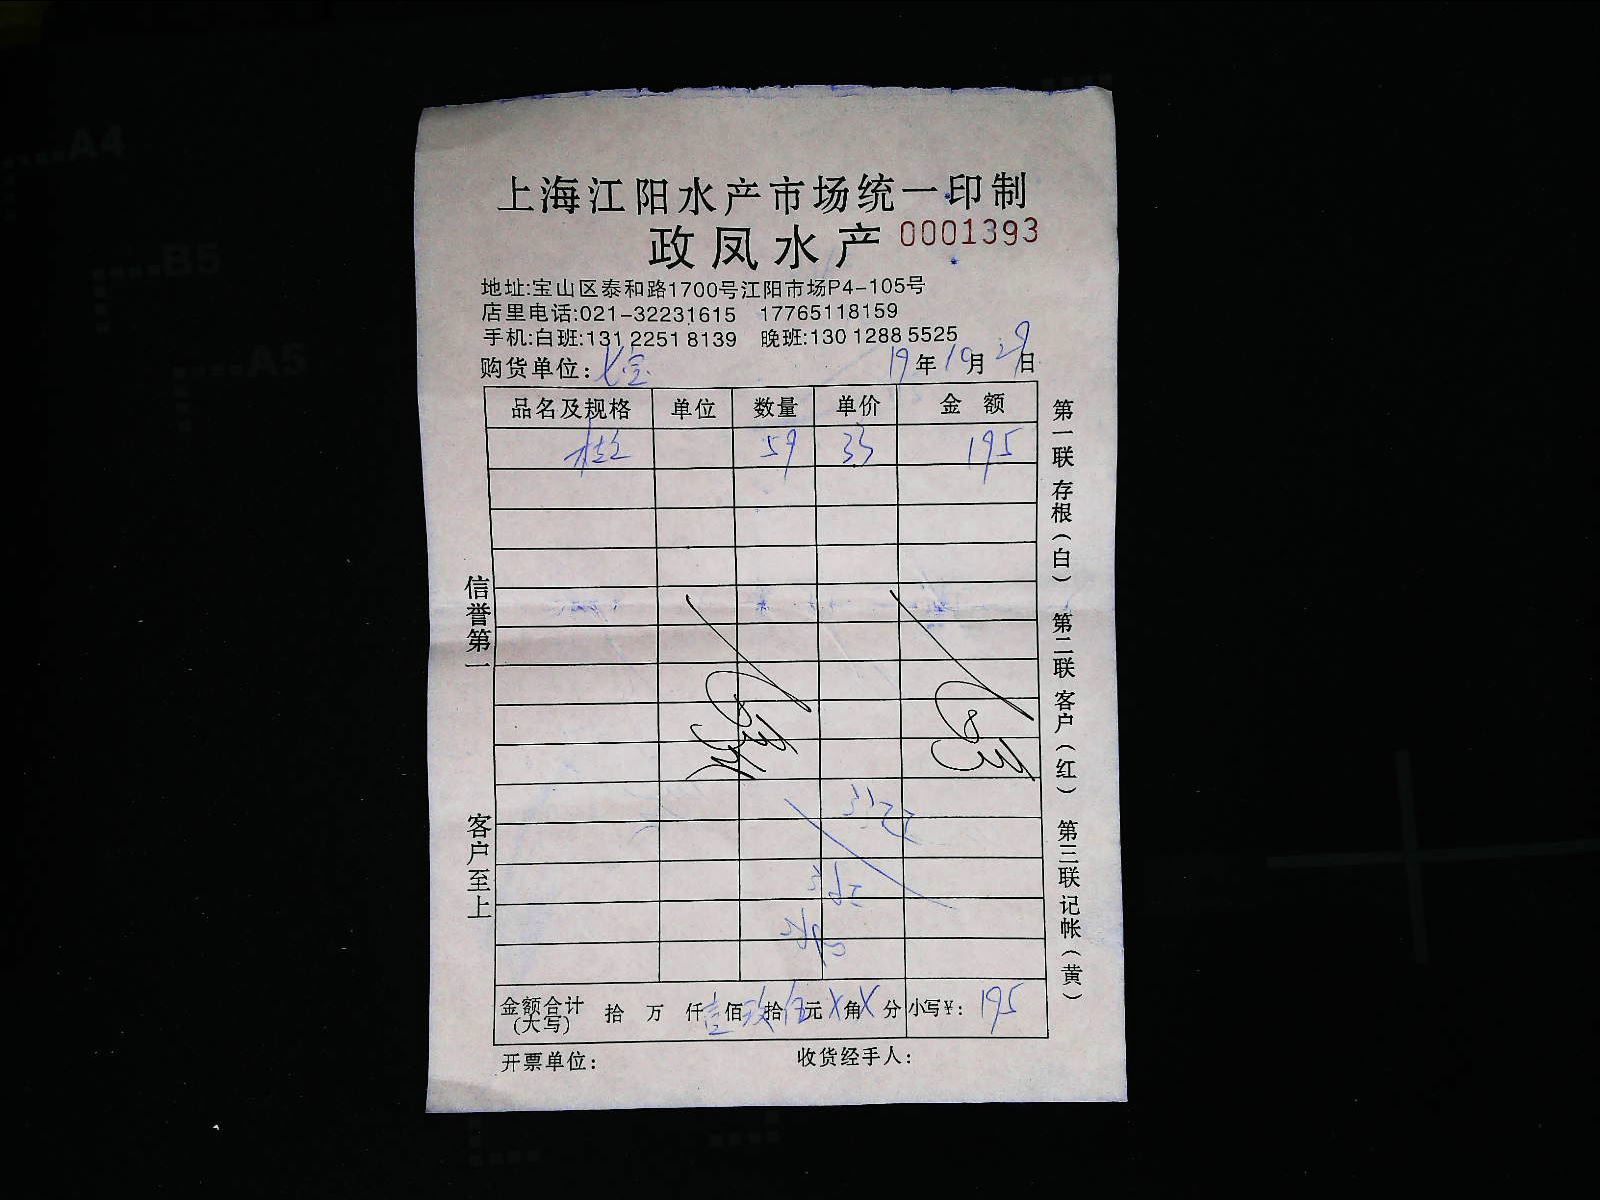 上海江阳水产市场统一印制
政凤水产 0001393
地址:宝山区泰和路1700号江阳市场P4-105号
店里电话:021-32231615 17765118159
手机:白班:131 2251 8139 晚班:130 1288 5525
购货单位: 19年10月29日
品名及规格 单位 数量 单价 金额
59 33 195
信誉第一 客户至上
第一联 存根(白) 第二联 客户(红) 第三联 记帐(黄)
金额合计(大写) 拾 万 仟壹佰玖拾伍元X角X分 小写¥: 195
开票单位: 收货经手人:
A4
B5
A5